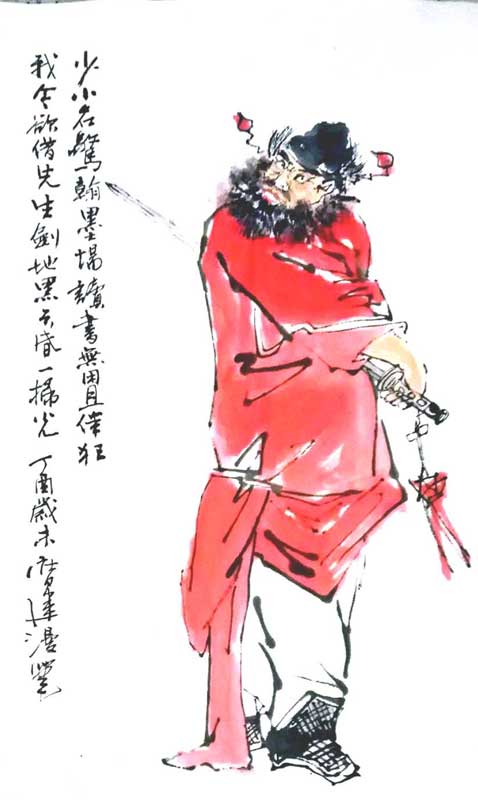 少小名驚翰墨場讀書無用且佯狂
我今欲借先生劍地黑天昏一掃光 丁酉歲末